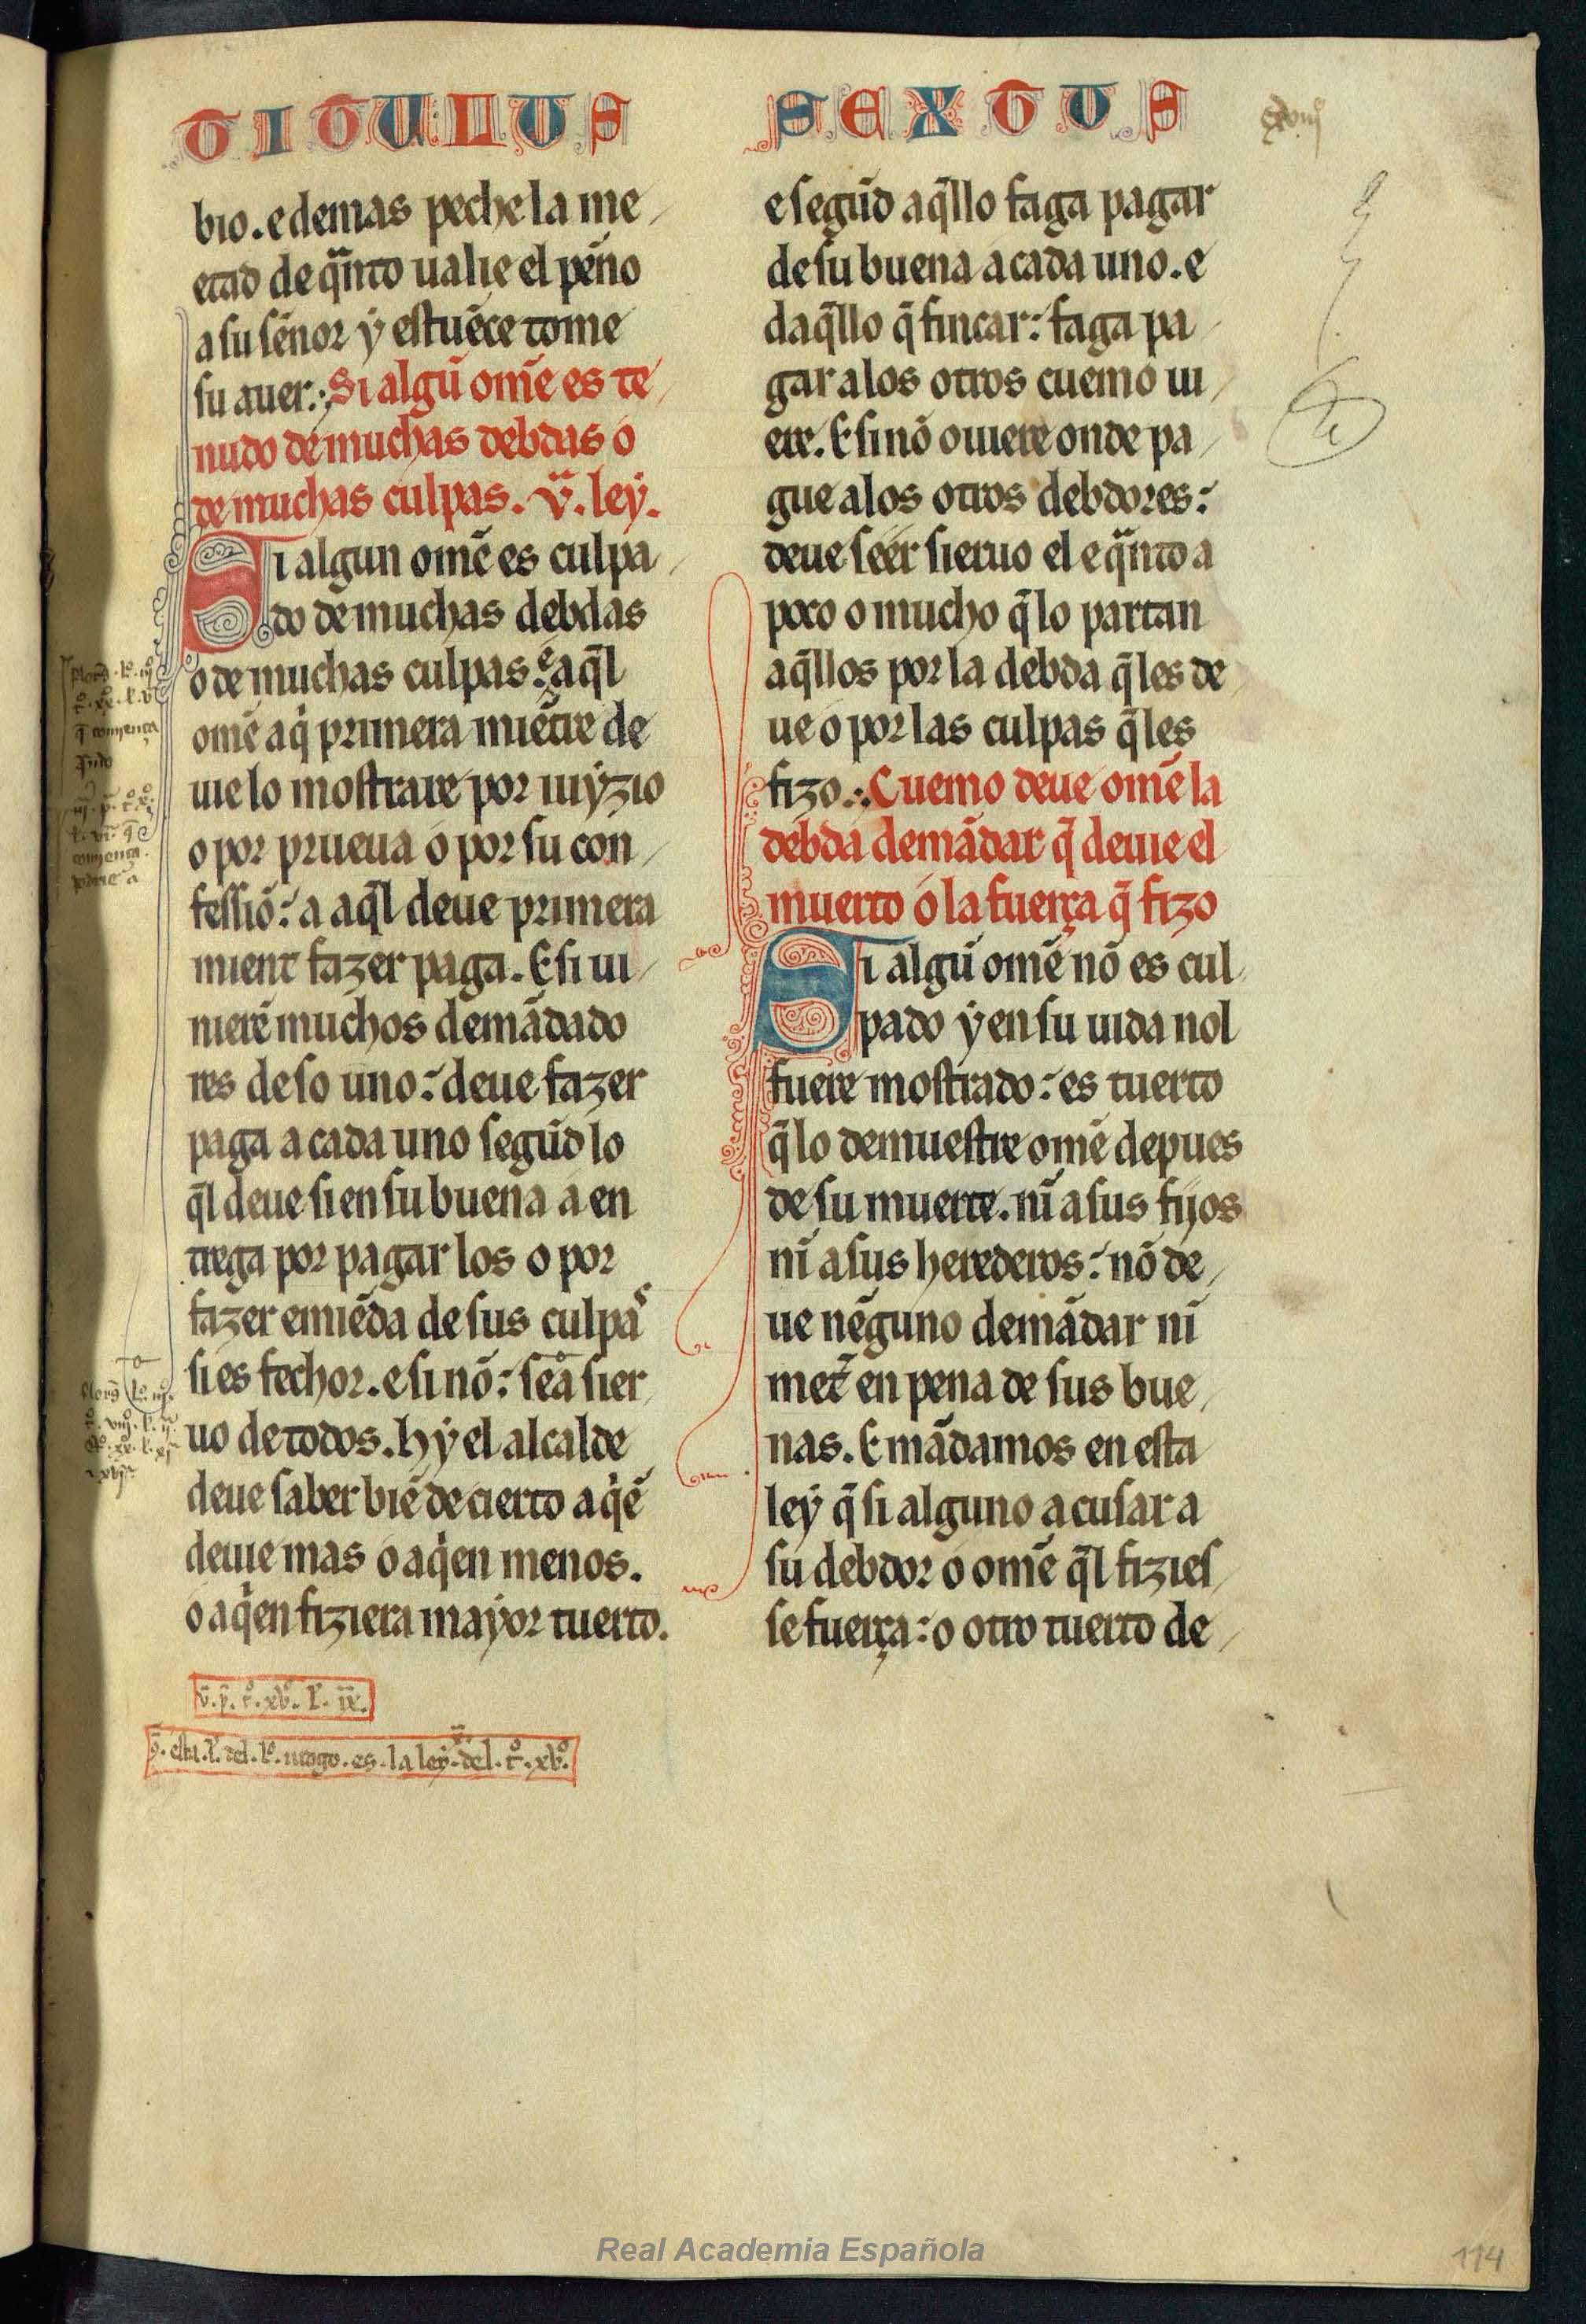 TITULUS SEXTUS
bio. e demas peche la me
etad de q̃nto ualie el pẽno
a su sẽnor ẏ estuẽce tome
su auer.; Si algũ omẽ es te
nudo de muchas debdas o
de muchas culpas. v̾. leẏ.
Si algun omẽ es culpa
do de muchas debdas
o de muchas culpas: aq̃l
omẽ a q̇ primera miẽtre de
uie lo mostrare por iuẏzio
o por prueua o por su con
fessiõ: a aq̃l deue primera
mient fazer paga. E si ui
nierẽ muchos demãdado
res de so uno: deue fazer
paga a cada uno segũd lo
q̃l deue si en su buena a en
trega por pagar los o por
fazer emiẽda de sus culpas
si es fechor. e si nõ: sea sier
uo de todos. hẏ el alcalde
deue saber biẽ de cierto a q̇ẽ
deuie mas o a q̇en menos.
o a q̇en fiziera maẏor tuerto.
v̾. p̃. t̊. xv̊. l̾. ix.
esta .l̾. del. l̊. iudgo. es. la leẏ. del. t̊. xv̊.
e segũd aq̃llo faga pagar
de su buena a cada uno. e
daq̃llo q̃ fincar: faga pa
gar a los otros cuemo ui
ere. E si nõ ouiere onde pa
gue a los otros debdores:
deue seer sieruo el e q̃nto a
poco o mucho q̃ lo partan
aq̃llos por la debda q̃ les de
ue o por las culpas q̃ les
fizo.; Cuemo deue omẽ la
debda demãdar q̃ deuie el
muerto o la fuerça q̃ fizo
Si algũ omẽ nõ es cul
pado ẏ en su uida nol
fuere mostrado: es tuerto
q̃ lo demuestre omẽ depues
de su muerte. nĩ a sus fijos
nĩ a sus herederos: nõ de
ue nẽguno demãdar nĩ
met̾ en pena de sus bue
nas. E mãdamos en esta
leẏ q̃ si alguno acusar a
su debdor o omẽ q̃l fizies
se fuerça: o otro tuerto de
114
Real Academia Española